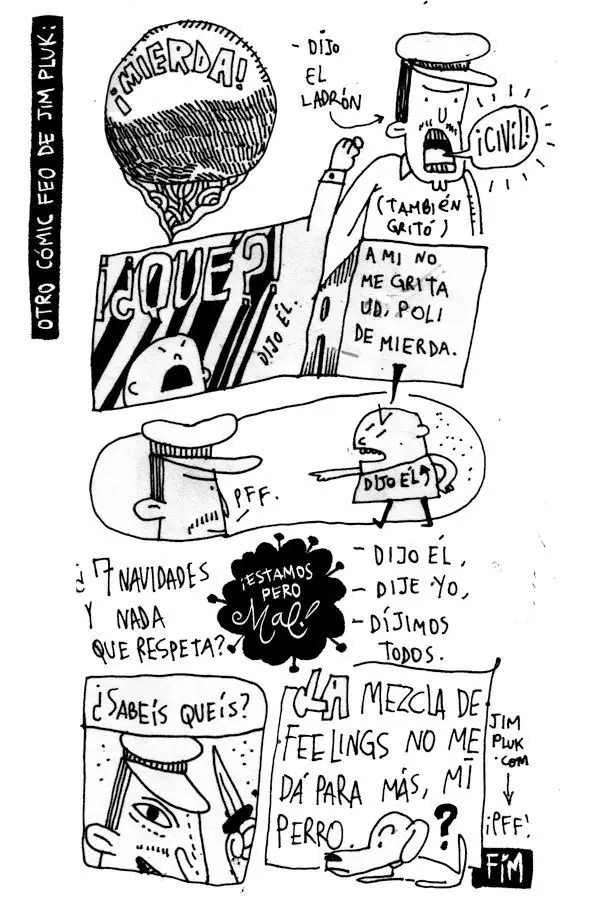 OTRO CÓMIC FEO DE JIM PLUK:
¡MIERDA!
- DIJO
EL
LADRÓN
¡CIVIL!
(TAMBIÉN
GRITÓ)
¡¿QUE?!
DIJO ÉL.
A MI NO
ME GRITA
UD, POLI
DE MIERDA.
PFF.
DIJO ÉL
¿7 NAVIDADES
Y NADA
QUE RESPETA?
¡ESTAMOS
PERO
Mal!
- DIJO ÉL,
- DIJE YO,
- DÍJIMOS
TODOS.
¿SABEÍS QUEÍS?
LA MEZCLA DE
FEELINGS NO ME
DÁ PARA MÁS, MÍ
PERRO.
?
JIM
PLUK
.COM
¡PFF!
FÍM